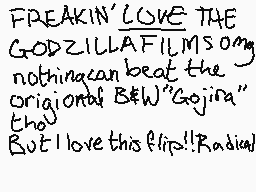 FREAKIN' LOVE THE
GODZILLA FILMS omg
nothing can beat the
origional B&W "Gojira"
tho
But I love this flip!! Radical